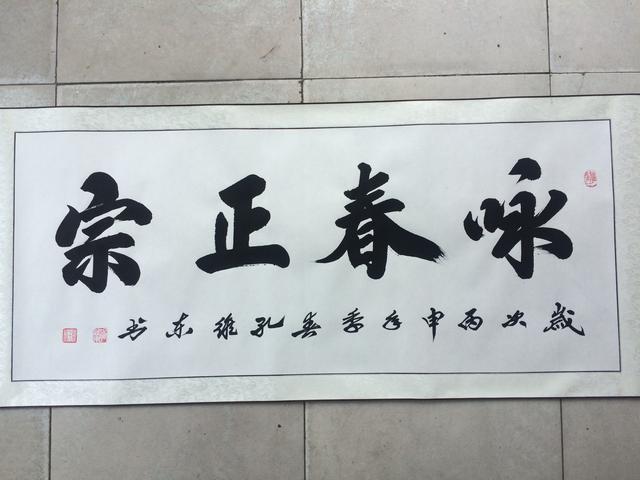 咏春正宗
岁次丙申年季春孔维东书